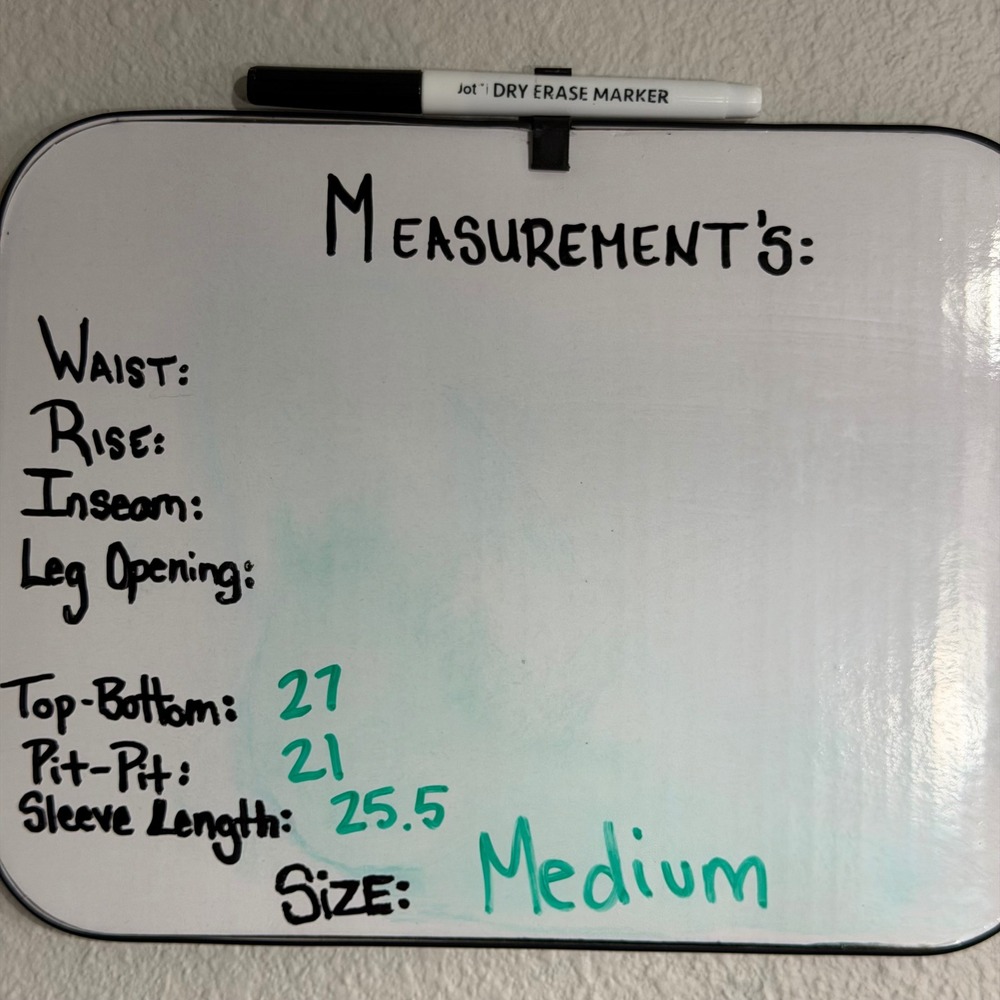 Jot™ DRY ERASE MARKER
MEASUREMENT'S:
WAIST:
RISE:
Inseam:
Leg Opening:
Top-Bottom: 27
Pit-Pit: 21
Sleeve Length: 25.5
SiZE: Medium